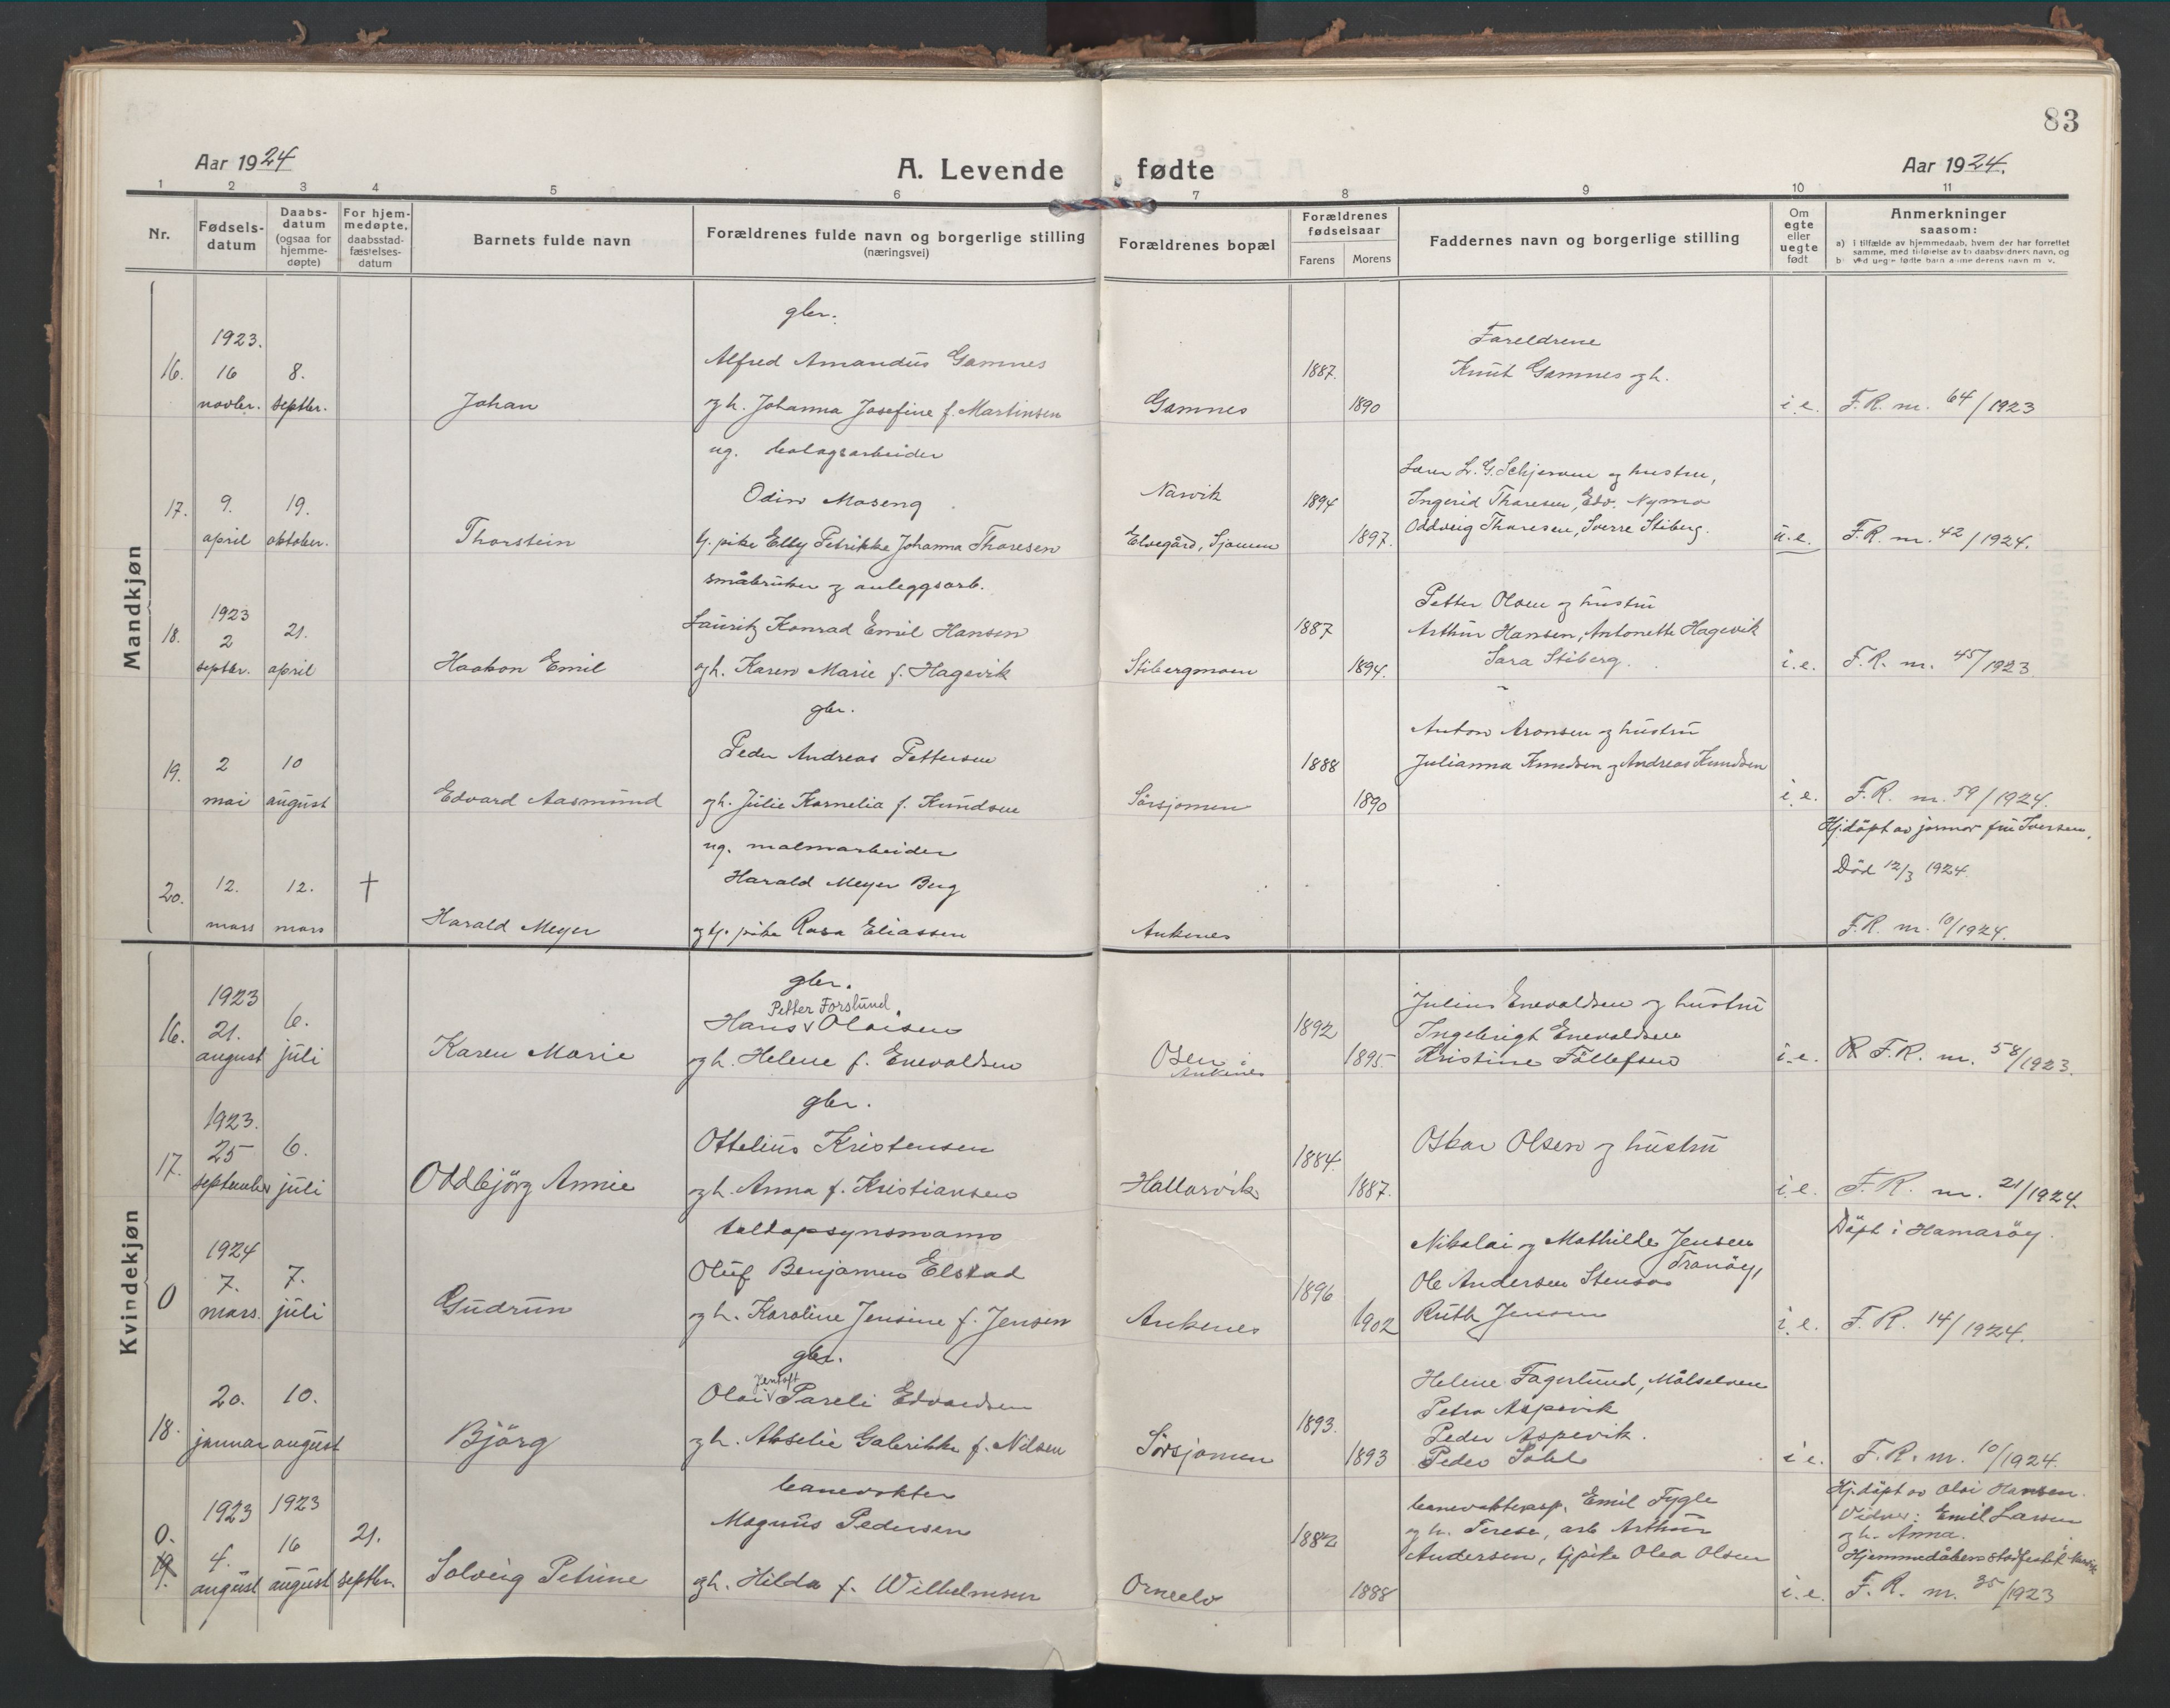 83
Aar 1924
A. Levende fødte
Aar 1924.
1 2 3 4 5 6 7 8 9 10 11
Nr.
Fødselsdatum
Daabsdatum (ogsaa for hjemmedøpte)
For hjemmedøpte, daabsstadfæstelsesdatum
Barnets fulde navn
Forældrenes fulde navn og borgerlige stilling (næringsvei)
Forældrenes bopæl
Forældrenes fødselsaar
Farens Morens
Faddernes navn og borgerlige stilling
Om egte eller uegte født
Anmerkninger saasom:
a) i tilfælde av hjemmedaab, hvem der har forrettet samme, med tilføielse av to daabsvidners navn, og
b) ved uegte fødte barn a
Mandkjøn
gbr.
1923.
Foreldrene
16. 16 8. Alfred Amandus Gamnes 1887. Knut Gamnes og h.
novbr. septbr. Johan og h. Johanna Josefine f. Martinsen Gamnes 1890 i.e. F.R. nr. 64/1923
ug. bolagsarbeider
17. 9. 19. Odin Moseng Narvik 1894
Lærer L. G. Schjervem og hustru,
Ingerid Thoresen, Edv. Nymo
Oddveig Thoresen, Sverre Stiberg.
april oktober. Thorstein Tj. pike Elly Petrikke Johanna Thoresen Elvegård, Sjomen 1897. u.e. F.R. nr. 42/1924.
småbruker og anleggsarb.
1923
18. 2 21. Lauritz Konrad Emil Hansen 1887
Petter Olsen og hustru
Arthur Hansen, Antonette Hagevik
Sara Stiberg.
septbr. april Haakon Emil og h. Karen Marie f. Hagevik Stibergmoen 1894. i.e. F.R. nr. 45/1923
gbr.
19. 2 10 Peder Andreas Pettersen 1888
Anton Aronsen og hustru
Julianna Knudsen og Andreas Knudsen
mai august Edvard Aasmund og h. Julie Kornelia f. Knudsen Sørsjomen 1890 i.e. F.R. nr. 59/1924.
ug. malmarbeider
Hj.døpt av jormor fru Iversen,
20. 12. 12. † Harald Meyer Berg Død 12/3 1924.
mars mars Harald Meyer og tj. pike Rosa Eliassen Ankenes F.R. nr. 10/1924.
Kvindekjøn
gbr.
1923
Petter Forslund
16. 21. 6. Hans v Olaisen 1892
Julius Enevoldsen og hustru
Ingebrigt Enevoldsen
Kristine Tollefsen
august juli Karen Marie og h. Helene f. Enevoldsen Osen i Ankenes 1895. i.e. F.R. nr. 58/1923.
gbr.
1923.
17. 25 6. Ottelius Kristensen 1884. Oskar Olsen og hustru
september juli Oddbjörg Annie og h. Anna f. Kristiansen Hallarvik 1887. i.e. F.R. nr. 21/1924.
toldopsynsmann Døpt i Hamarøy.
1924
0 7. 7. Oluf Benjamin Elstad 1896
Nikolai og Mathilde Jensen
Tranøy,
Ole Andersen
Ruth Jensen
mars. juli Gudrun og h. Karoline Jensine f. Jensen Ankenes 1902 i.e. F.R. 14/1924.
gbr.
Jentoft
18. 20. 10. Olai v Pareli Edvardsen 1893.
Helene Fagerlund, Målselven
Petra Aspevik
Peder Aspevik.
januar august Björg og h. Akselie Galerikke f. Nilsen Sørsjomen 1893 Peder i e. F.R. nr. 10/1924.
banevokter
1923 1923
0. 19. 4. 16 21. Magnus Pedersen 1882
banevokterasp. Emil Fygle
og h. Terese, arb Arthur
Andersen, tj.pike Olea Olsen
Hj.døpt av Olai Hansen.
Vidner: Emil Larsen
og h. Anna.
Hjemmedåben stadfestet i Narvik
august august septbr. Solveig Petrine og h. Hilda f. Wilhelmsen Orneelv 1888 i.e. F.R. nr. 35/1923